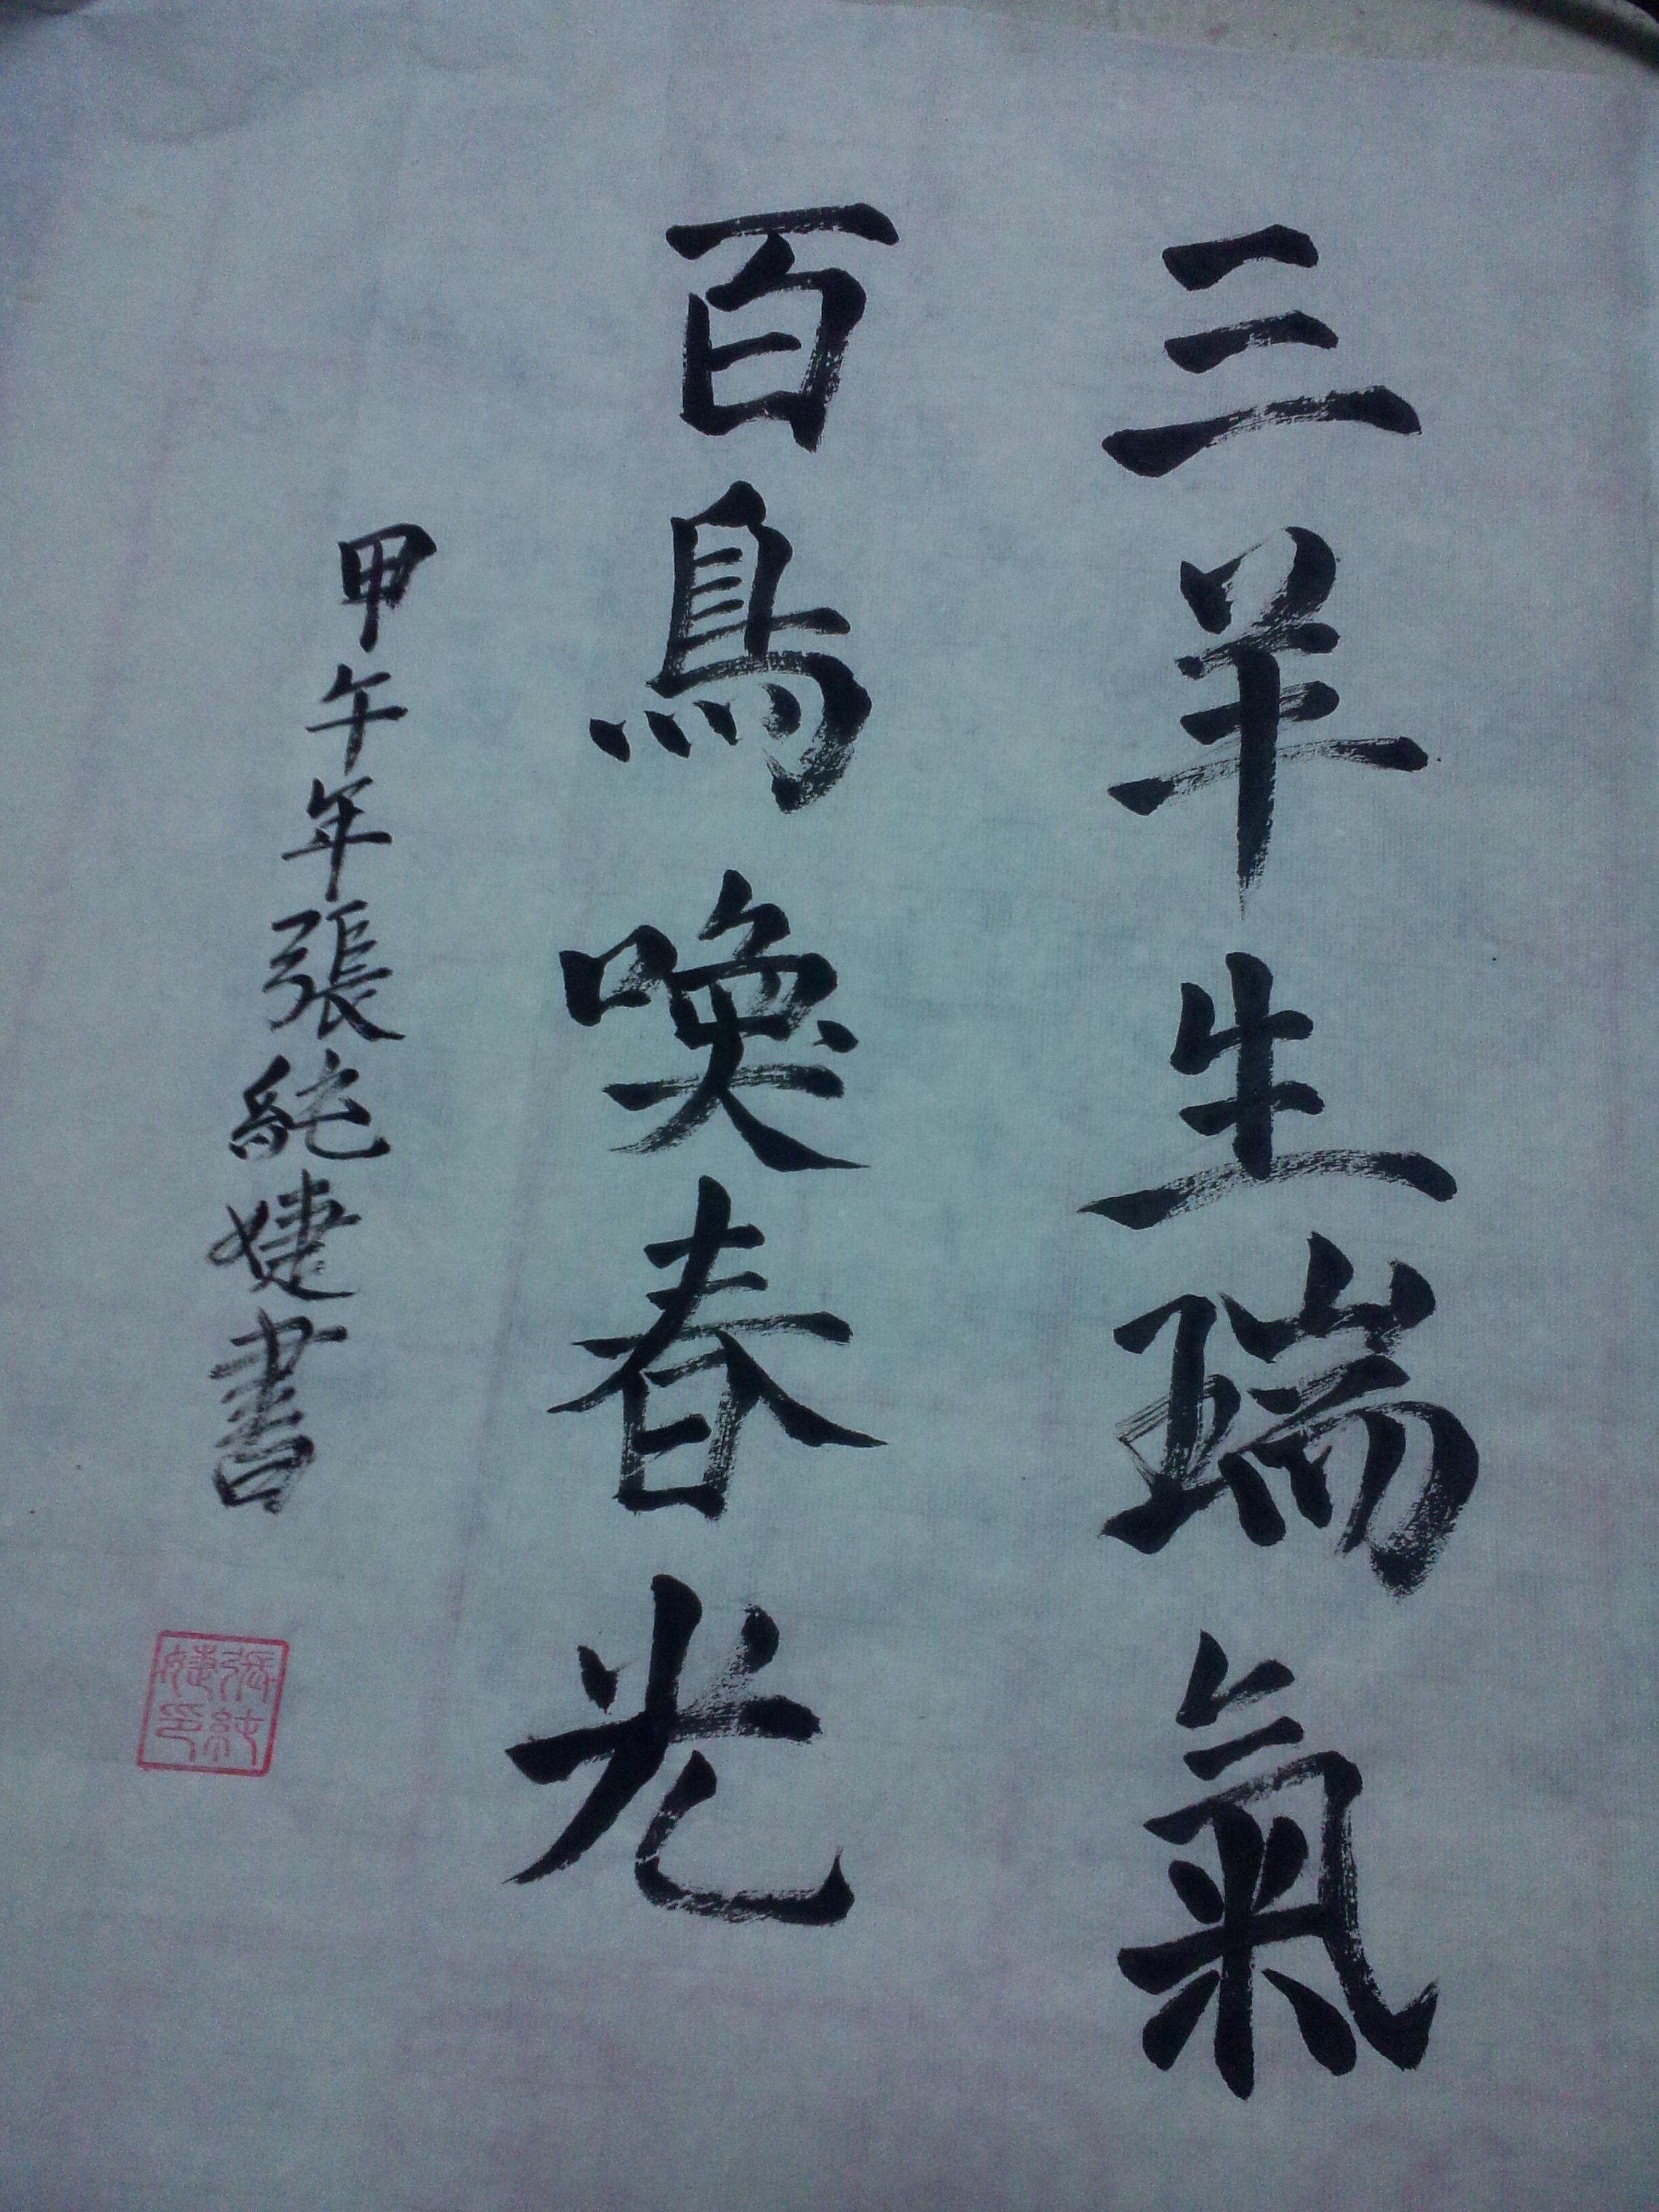 三羊生瑞氣
百鳥喚春光
甲午年張純婕書
張純
婕印